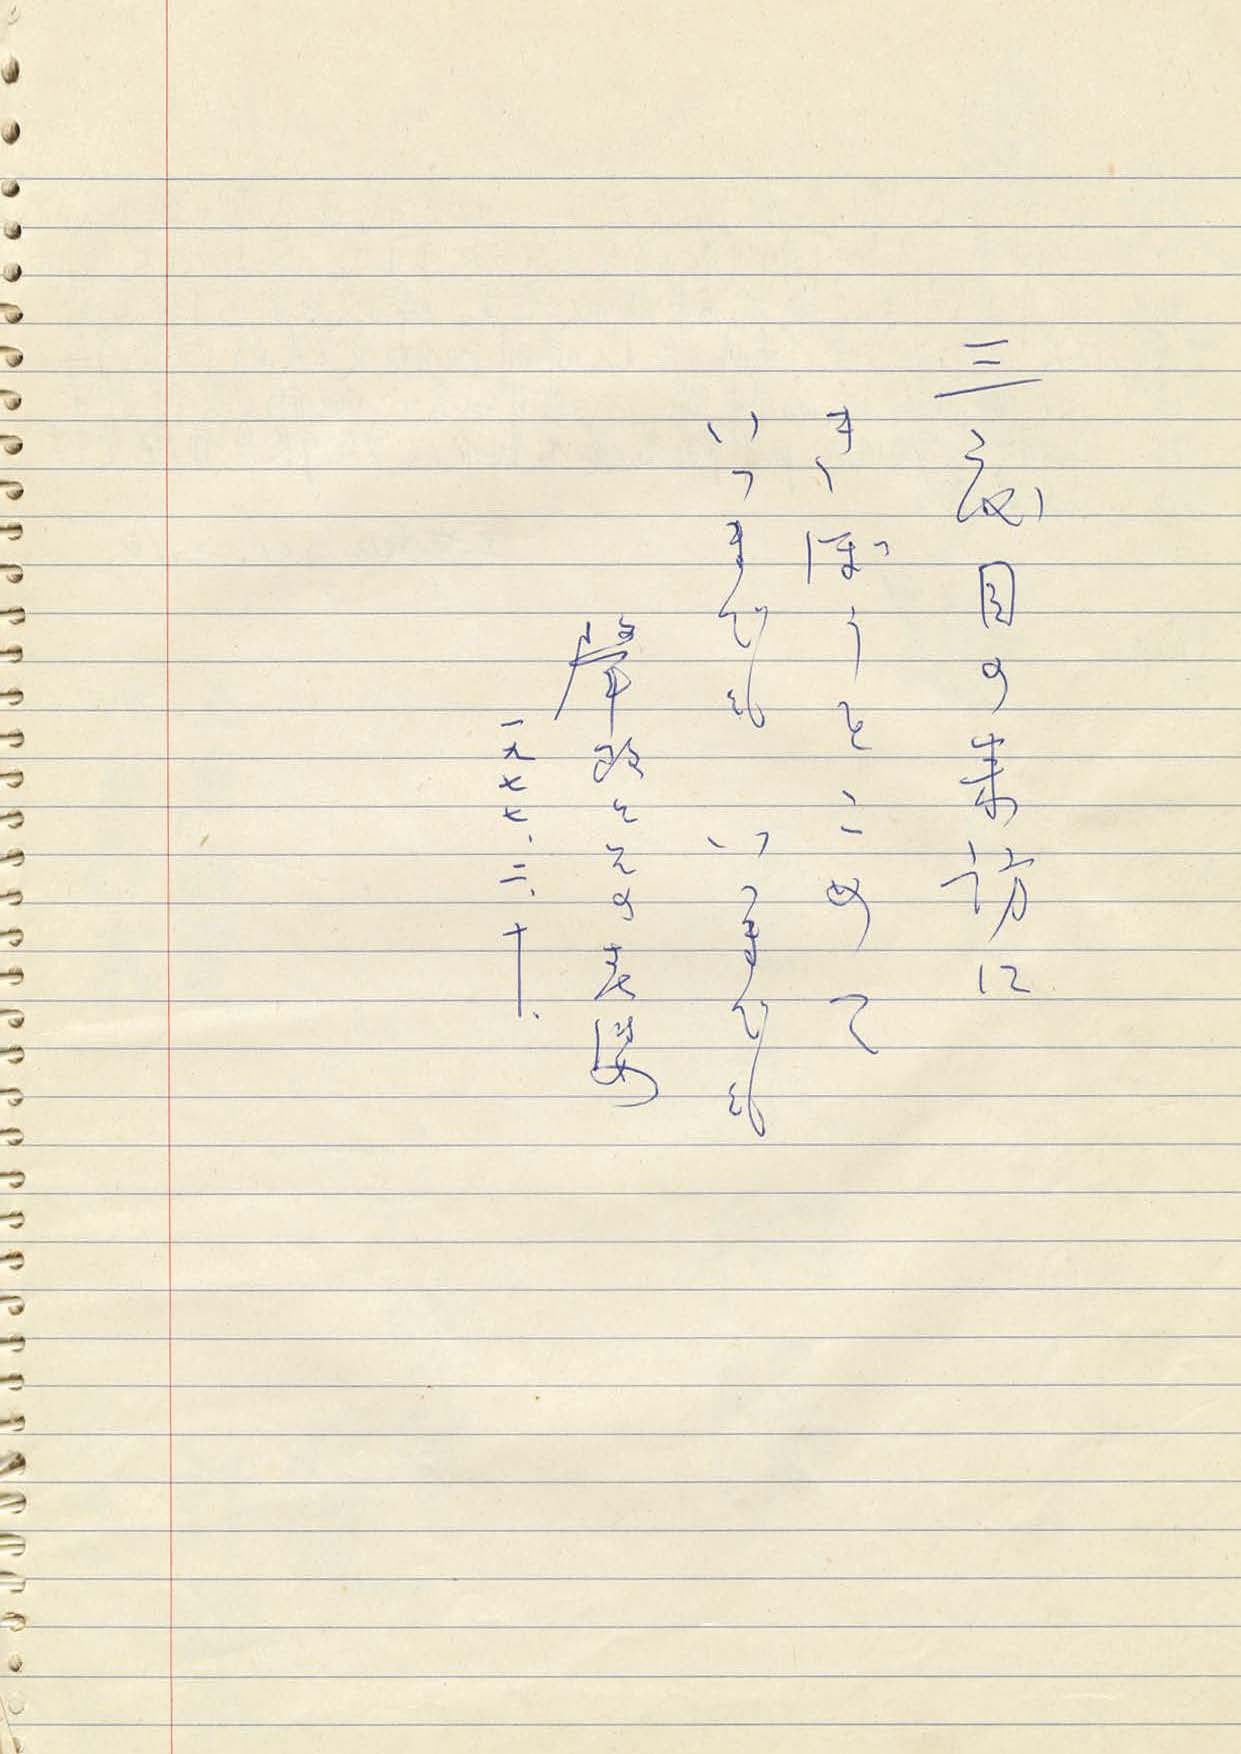 三度目の来訪に
きぼうをこめて
いつまでも いつまでも
肇政とその老婆
一九七七、二、十、